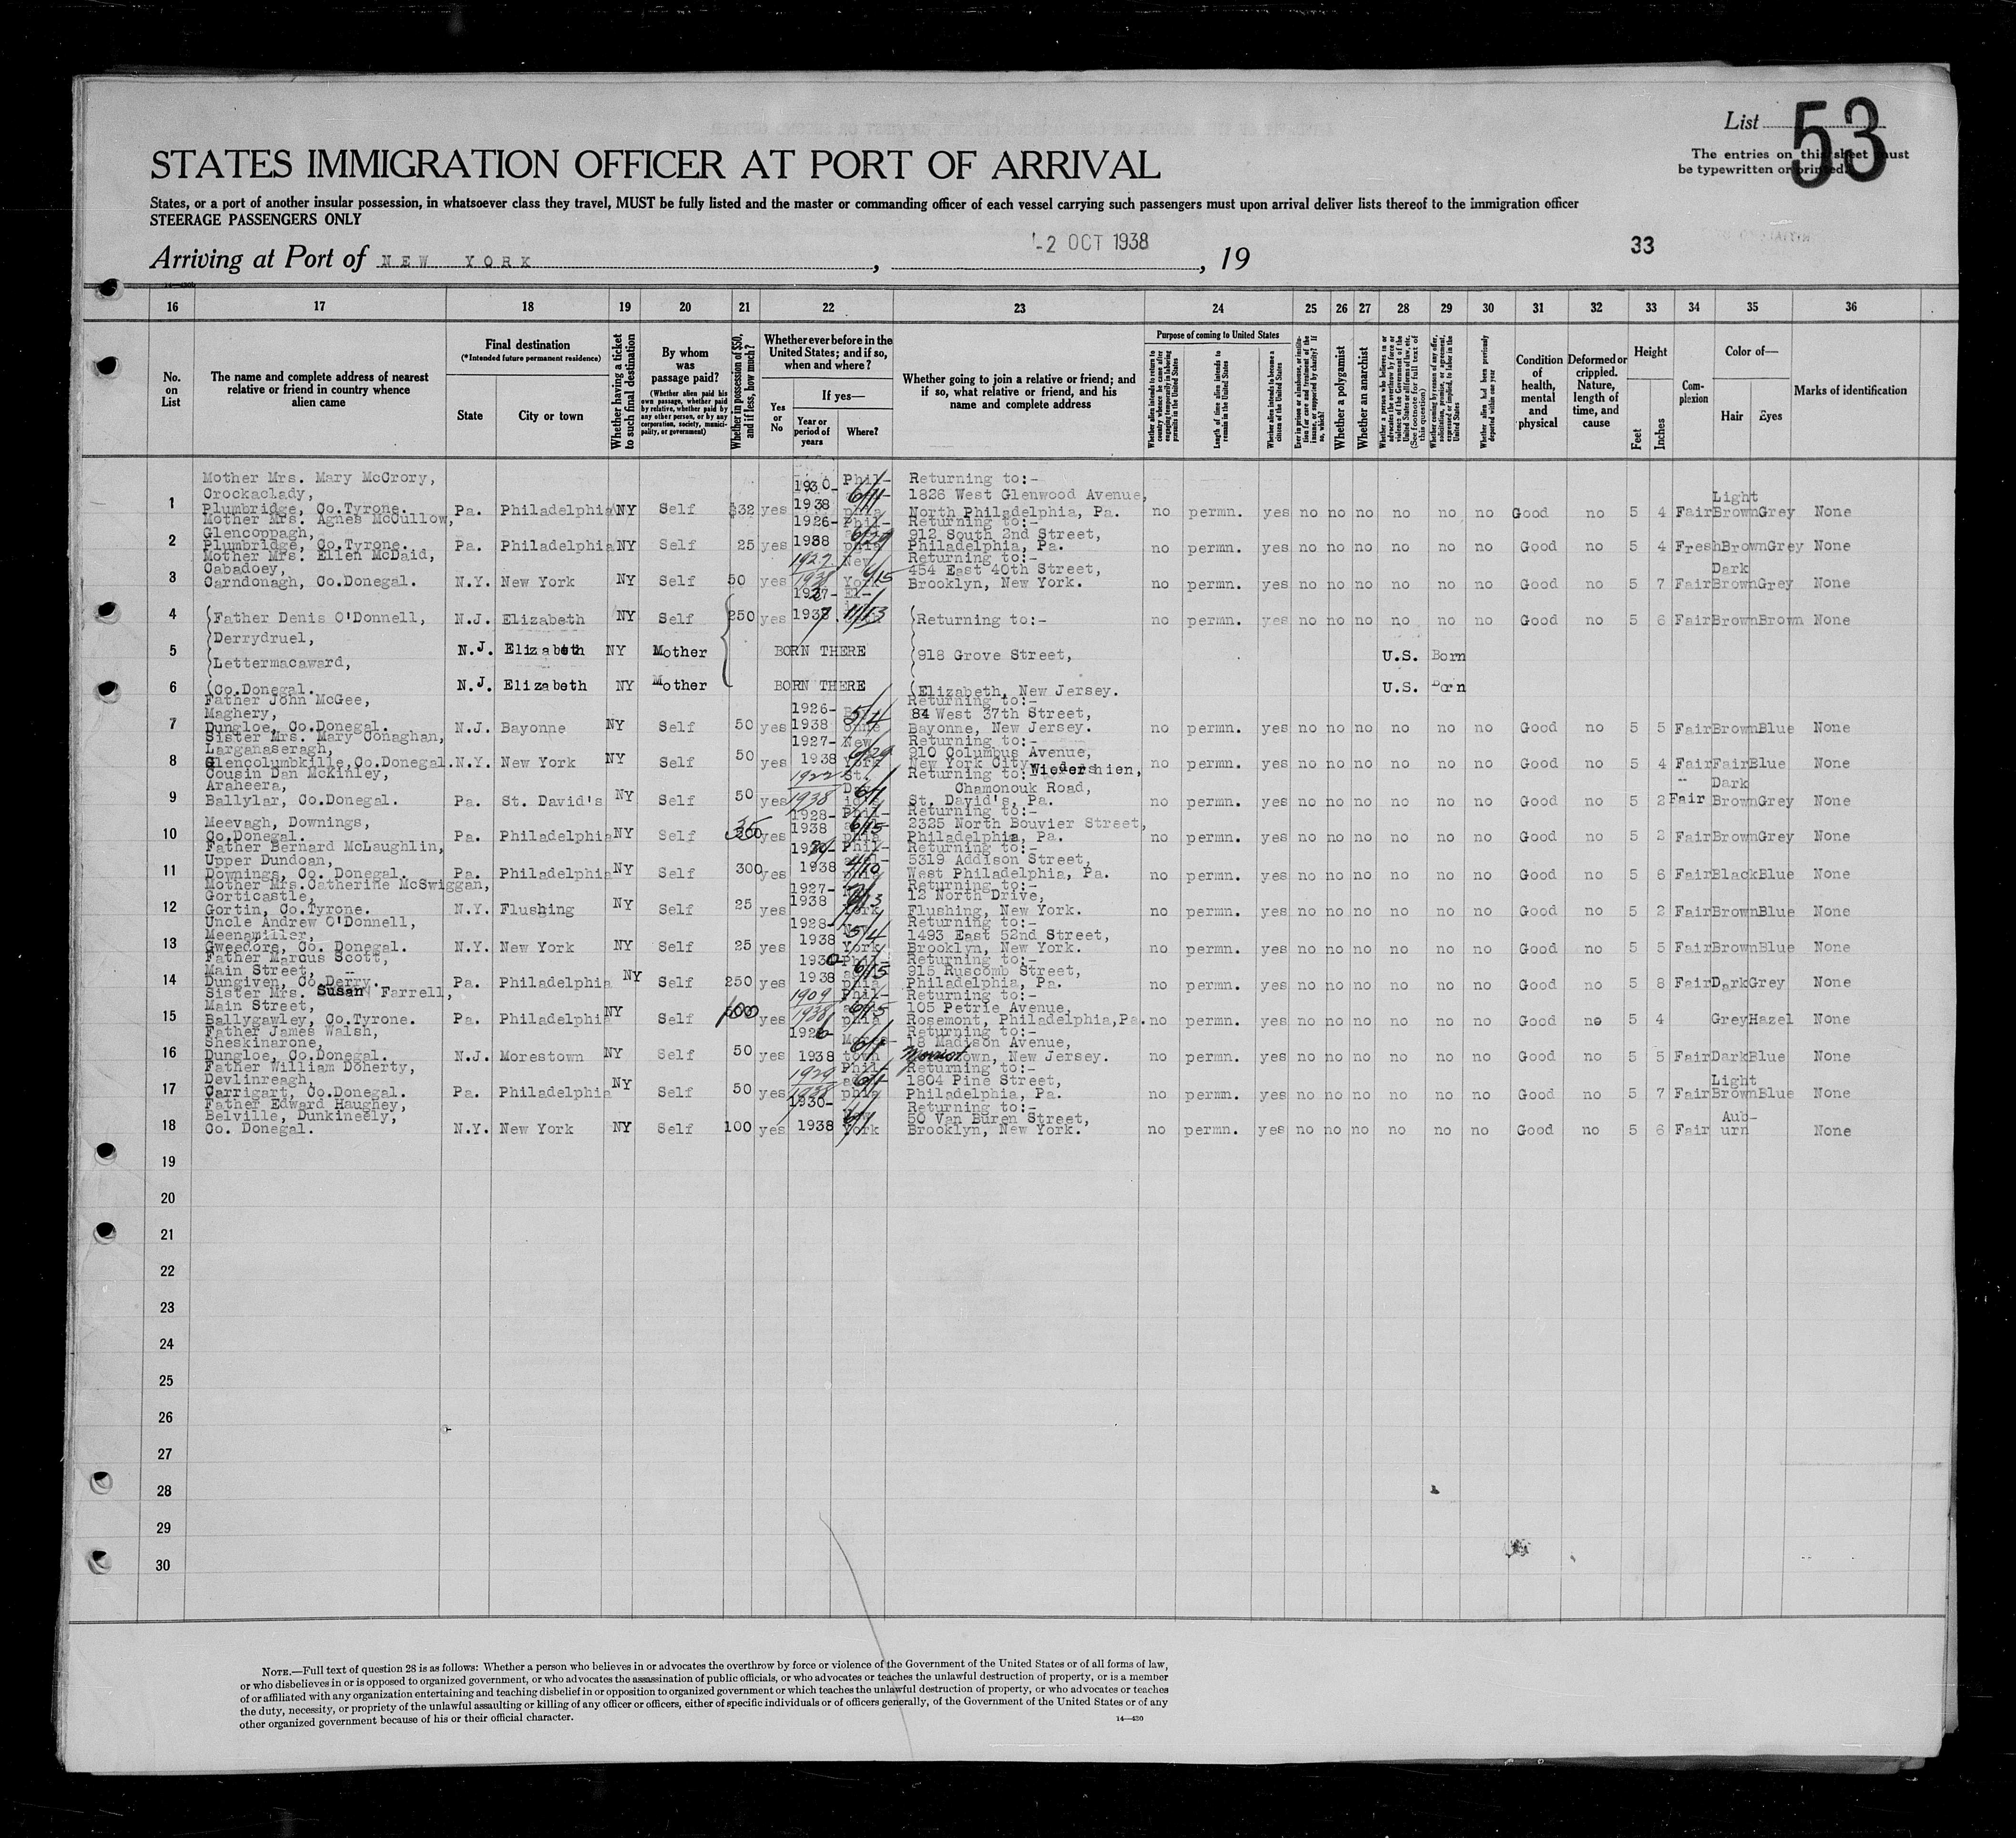 List 53
The entries on this sheet must
be typewritten or printed.
STATES IMMIGRATION OFFICER AT PORT OF ARRIVAL
States, or a port of another insular possession, in whatsoever class they travel, MUST be fully listed and the master or commanding officer of each vessel carrying such passengers must upon arrival deliver lists thereof to the immigration officer
STEERAGE PASSENGERS ONLY
Arriving at Port of NEW YORK, -2 OCT 1938, 19
33
16 17 18 19 20 21 22 23 24 25 26 27 28 29 30 31 32 33 34 35 36
No. on List
The name and complete address of nearest relative or friend in country whence alien came
Final destination
(*Intended future permanent residence)
State
City or town
Whether having a ticket to such final destination
By whom was passage paid?
(Whether alien paid his own passage, whether paid by relative, whether paid by any other person, or by any corporation, society, municipality, or government)
Whether in possession of $50, and if less, how much?
Whether ever before in the United States; and if so, when and where?
Yes or No
If yes—
Year or period of years
Where?
Whether going to join a relative or friend; and if so, what relative or friend, and his name and complete address
Purpose of coming to United States
Length of time alien intends to remain in the United States
Whether alien intends to become a citizen of the United States
Whether a polygamist
Whether an anarchist
Condition of health, mental and physical
Deformed or crippled. Nature, length of time, and cause
Height
Feet
Inches
Complexion
Color of—
Hair
Eyes
Marks of identification
Mother Mrs. Mary McCrory,
Crockaclady,
1 Plumbridge, Co.Tyrone. Pa. Philadelphia NY Self $32 yes 1930- 1938 Phil- phia 6/1 Returning to:- 1826 West Glenwood Avenue, North Philadelphia, Pa. no permn. yes no no no no no no Good no 5 4 Fair Light Brown Grey None
Mother Mrs. Agnes McCullow,
Glencoppagh,
2 Plumbridge, Co.Tyrone. Pa. Philadelphia NY Self 25 yes 1926- 1938 Phil- phia 6/29 Returning to:- 912 South 2nd Street, Philadelphia, Pa. no permn. yes no no no no no no Good no 5 4 Fresh Brown Grey None
Mother Mrs. Ellen McDaid,
Cabadoey,
3 Carndonagh, Co.Donegal. N.Y. New York NY Self 50 yes 1927 1938 New York 6/15 Returning to:- 454 East 40th Street, Brooklyn, New York. no permn. yes no no no no no no Good no 5 7 Fair Dark Brown Grey None
4 Father Denis O'Donnell, N.J. Elizabeth NY Self 250 yes 1937 El- 11/13 Returning to:- no permn. yes no no no no no no Good no 5 6 Fair Brown Brown None
Derrydruel,
5 Lettermacaward, N.J. Elizabeth NY Mother BORN THERE 918 Grove Street, U.S. Born
6 Co.Donegal. N.J. Elizabeth NY Mother BORN THERE Elizabeth, New Jersey. U.S. Born
Father John McGee,
Maghery,
7 Dungloe, Co.Donegal. N.J. Bayonne NY Self 50 yes 1926- 1938 5/4 Returning to:- 84 West 37th Street, Bayonne, New Jersey. no permn. yes no no no no no no Good no 5 5 Fair Brown Blue None
Sister Mrs. Mary Conaghan,
Larganaseragh,
8 Glencolumbkille,Co.Donegal. N.Y. New York NY Self 50 yes 1927- 1938 New York 6/29 Returning to:- 910 Columbus Avenue, New York City. no permn. yes no no no no no no Good no 5 4 Fair Fair Blue None
Cousin Dan McKinley,
Araheera,
9 Ballylar, Co.Donegal. Pa. St. David's NY Self 50 yes 1922 1938 St. 6/1 Returning to: Wiedershien, Chamonouk Road, St. David's, Pa. no permn. yes no no no no no no Good no 5 2 Fair Dark Brown Grey None
Meevagh, Downings,
10 Co.Donegal. Pa. Philadelphia NY Self 35 yes 1928- 1938 Phil- phia 6/15 Returning to:- 2325 North Bouvier Street, Philadelphia, Pa. no permn. yes no no no no no no Good no 5 2 Fair Brown Grey None
Father Bernard McLaughlin,
Upper Dundoan,
11 Downings, Co. Donegal. Pa. Philadelphia NY Self 300 yes 1938 Phil- 4/10 Returning to:- 5319 Addison Street, West Philadelphia, Pa. no permn. yes no no no no no no Good no 5 6 Fair Black Blue None
Mother Mrs.Catherine McSwiggan,
Gorticastle,
12 Gortin, Co.Tyrone. N.Y. Flushing NY Self 25 yes 1927- 1938 York Returning to:- 12 North Drive, Flushing, New York. no permn. yes no no no no no no Good no 5 2 Fair Brown Blue None
Uncle Andrew O'Donnell,
Meenamiller,
13 Gweedore, Co. Donegal. N.Y. New York NY Self 25 yes 1928- 1938 New York 5/4 Returning to:- 1493 East 52nd Street, Brooklyn, New York. no permn. yes no no no no no no Good no 5 5 Fair Brown Blue None
Father Marcus Scott,
Main Street,
14 Dungiven, Co.Derry. Pa. Philadelphia NY Self 250 yes 1930 1938 Phil- phia 6/15 Returning to:- 915 Ruscomb Street, Philadelphia, Pa. no permn. yes no no no no no no Good no 5 8 Fair Dark Grey None
Sister Mrs. Susan Farrell,
Main Street,
15 Ballygawley, Co.Tyrone. Pa. Philadelphia NY Self yes 1909 1938 Phil- phia 6/15 Returning to:- 105 Petrie Avenue, Rosemont, Philadelphia,Pa. no permn. yes no no no no no no Good no 5 4 Grey Hazel None
Father James Walsh,
Sheskinarone,
16 Dungloe, Co.Donegal. N.J. Morestown NY Self 50 yes 1926 1938 town 6/1 Returning to:- 18 Madison Avenue, town, New Jersey. no permn. yes no no no no no no Good no 5 5 Fair Dark Blue None
Father William Doherty,
Devlinreagh,
17 Carrigart, Co.Donegal. Pa. Philadelphia NY Self 50 yes 1929 1938 Phil- phia 6/1 Returning to:- 1804 Pine Street, Philadelphia, Pa. no permn. yes no no no no no no Good no 5 7 Fair Light Brown Blue None
Father Edward Haughey,
Belville, Dunkineely,
18 Co. Donegal. N.Y. New York NY Self 100 yes 1930- 1938 New York 6/1 Returning to:- 50 Van Buren Street, Brooklyn, New York. no permn. yes no no no no no no Good no 5 6 Fair Aub- urn None
19
20
21
22
23
24
25
26
27
28
29
30
NOTE.—Full text of question 28 is as follows: Whether a person who believes in or advocates the overthrow by force or violence of the Government of the United States or of all forms of law,
or who disbelieves in or is opposed to organized government, or who advocates the assassination of public officials, or who advocates or teaches the unlawful destruction of property, or is a member
of or affiliated with any organization entertaining and teaching disbelief in or opposition to organized government or which teaches the unlawful destruction of property, or who advocates or teaches
the duty, necessity, or propriety of the unlawful assaulting or killing of any officer or officers, either of specific individuals or of officers generally, of the Government of the United States or of any
other organized government because of his or their official character.
14—430